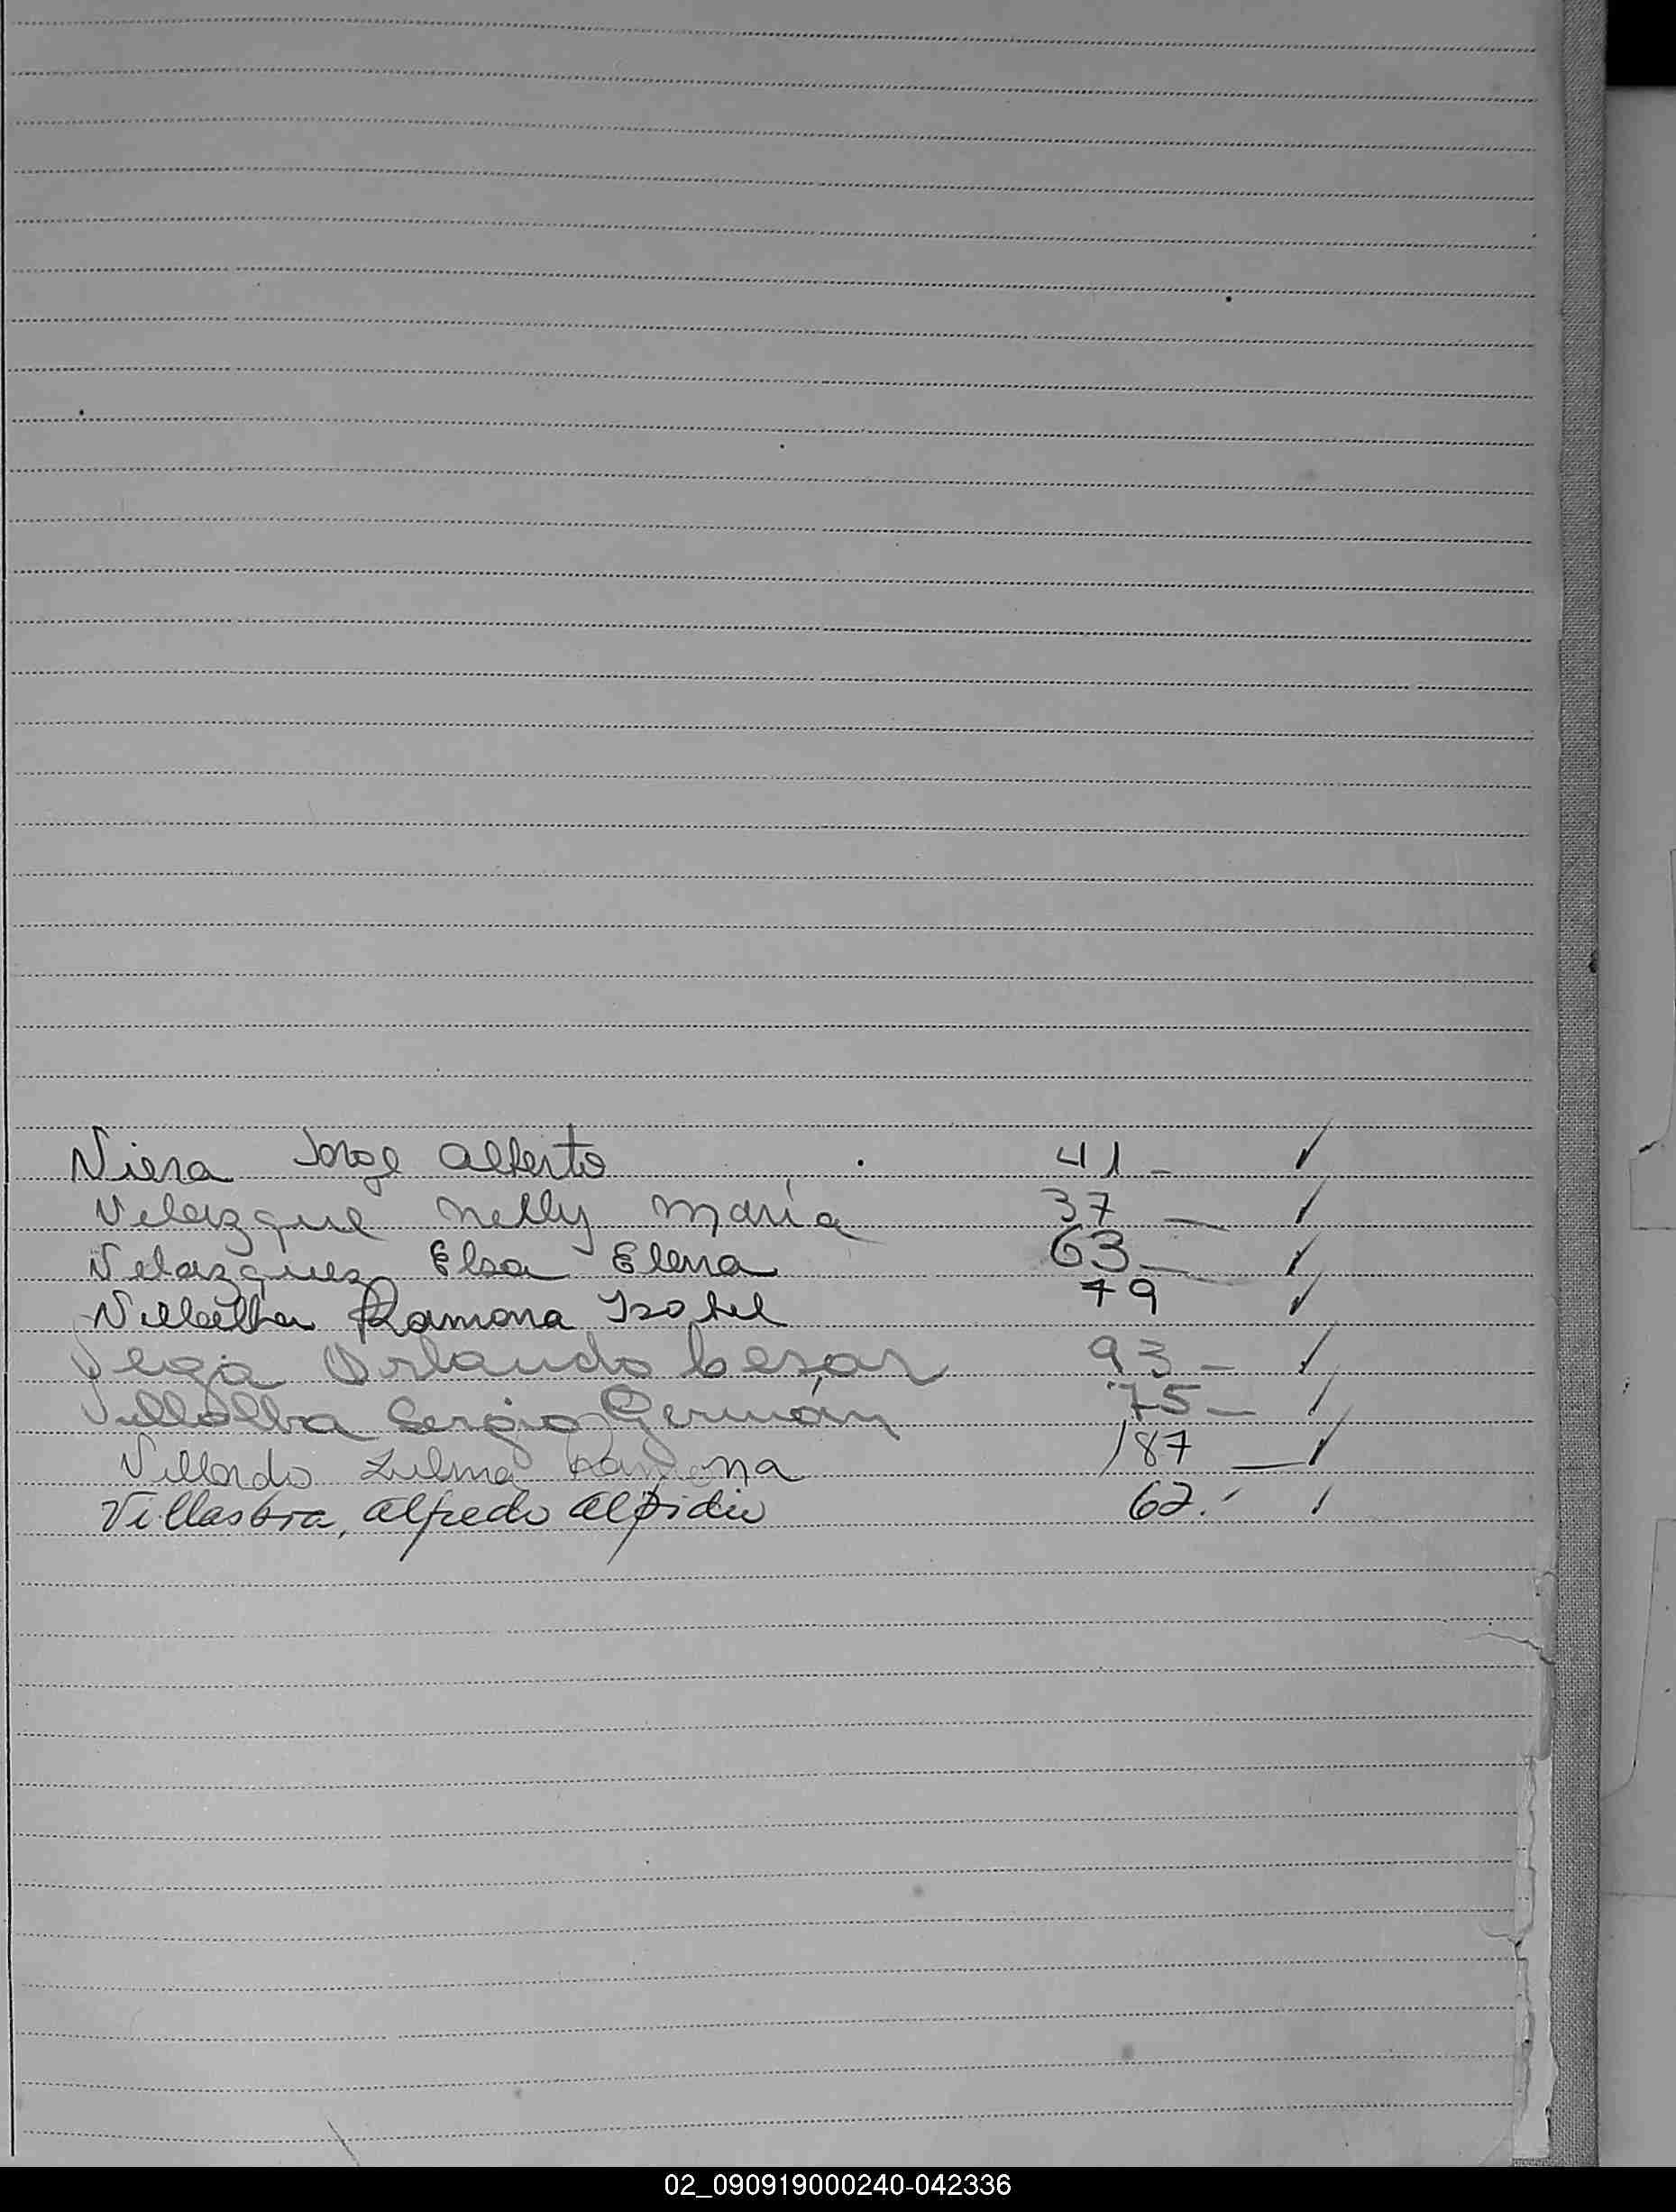 Viera Jorge Alberto 41 - ✓
Velazque Nelly María 37 — ✓
Velazquez Elsa Elena 63 — ✓
Villalba Ramona Isabel 79 ✓
Vega Orlando Cesar 93 - ✓
Villalba Sergio Germán 75 - ✓
Villordo Zulma Ramona 187 — ✓
Villasboa, Alfredo Alpidio 62.- ✓
02_090919000240-042336